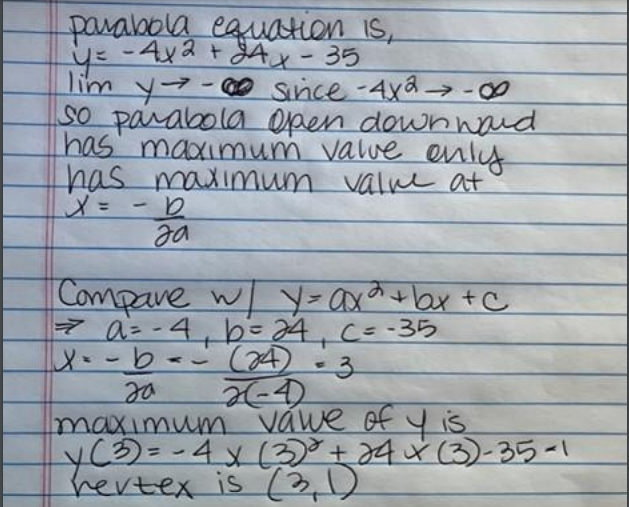 parabola equation is,
y = -4x² + 24x - 35
lim y → -∞ since -4x² → -∞
so parabola open downward
has maximum value only
has maximum value at
x = - b/2a
Compare w/ y = ax² + bx + c
⇒ a = -4, b = 24, c = -35
x = - b/2a = - (24)/2(-4) = 3
maximum value of y is
y(3) = -4 x (3)² + 24 x (3) - 35 = 1
hertex is (3,1)